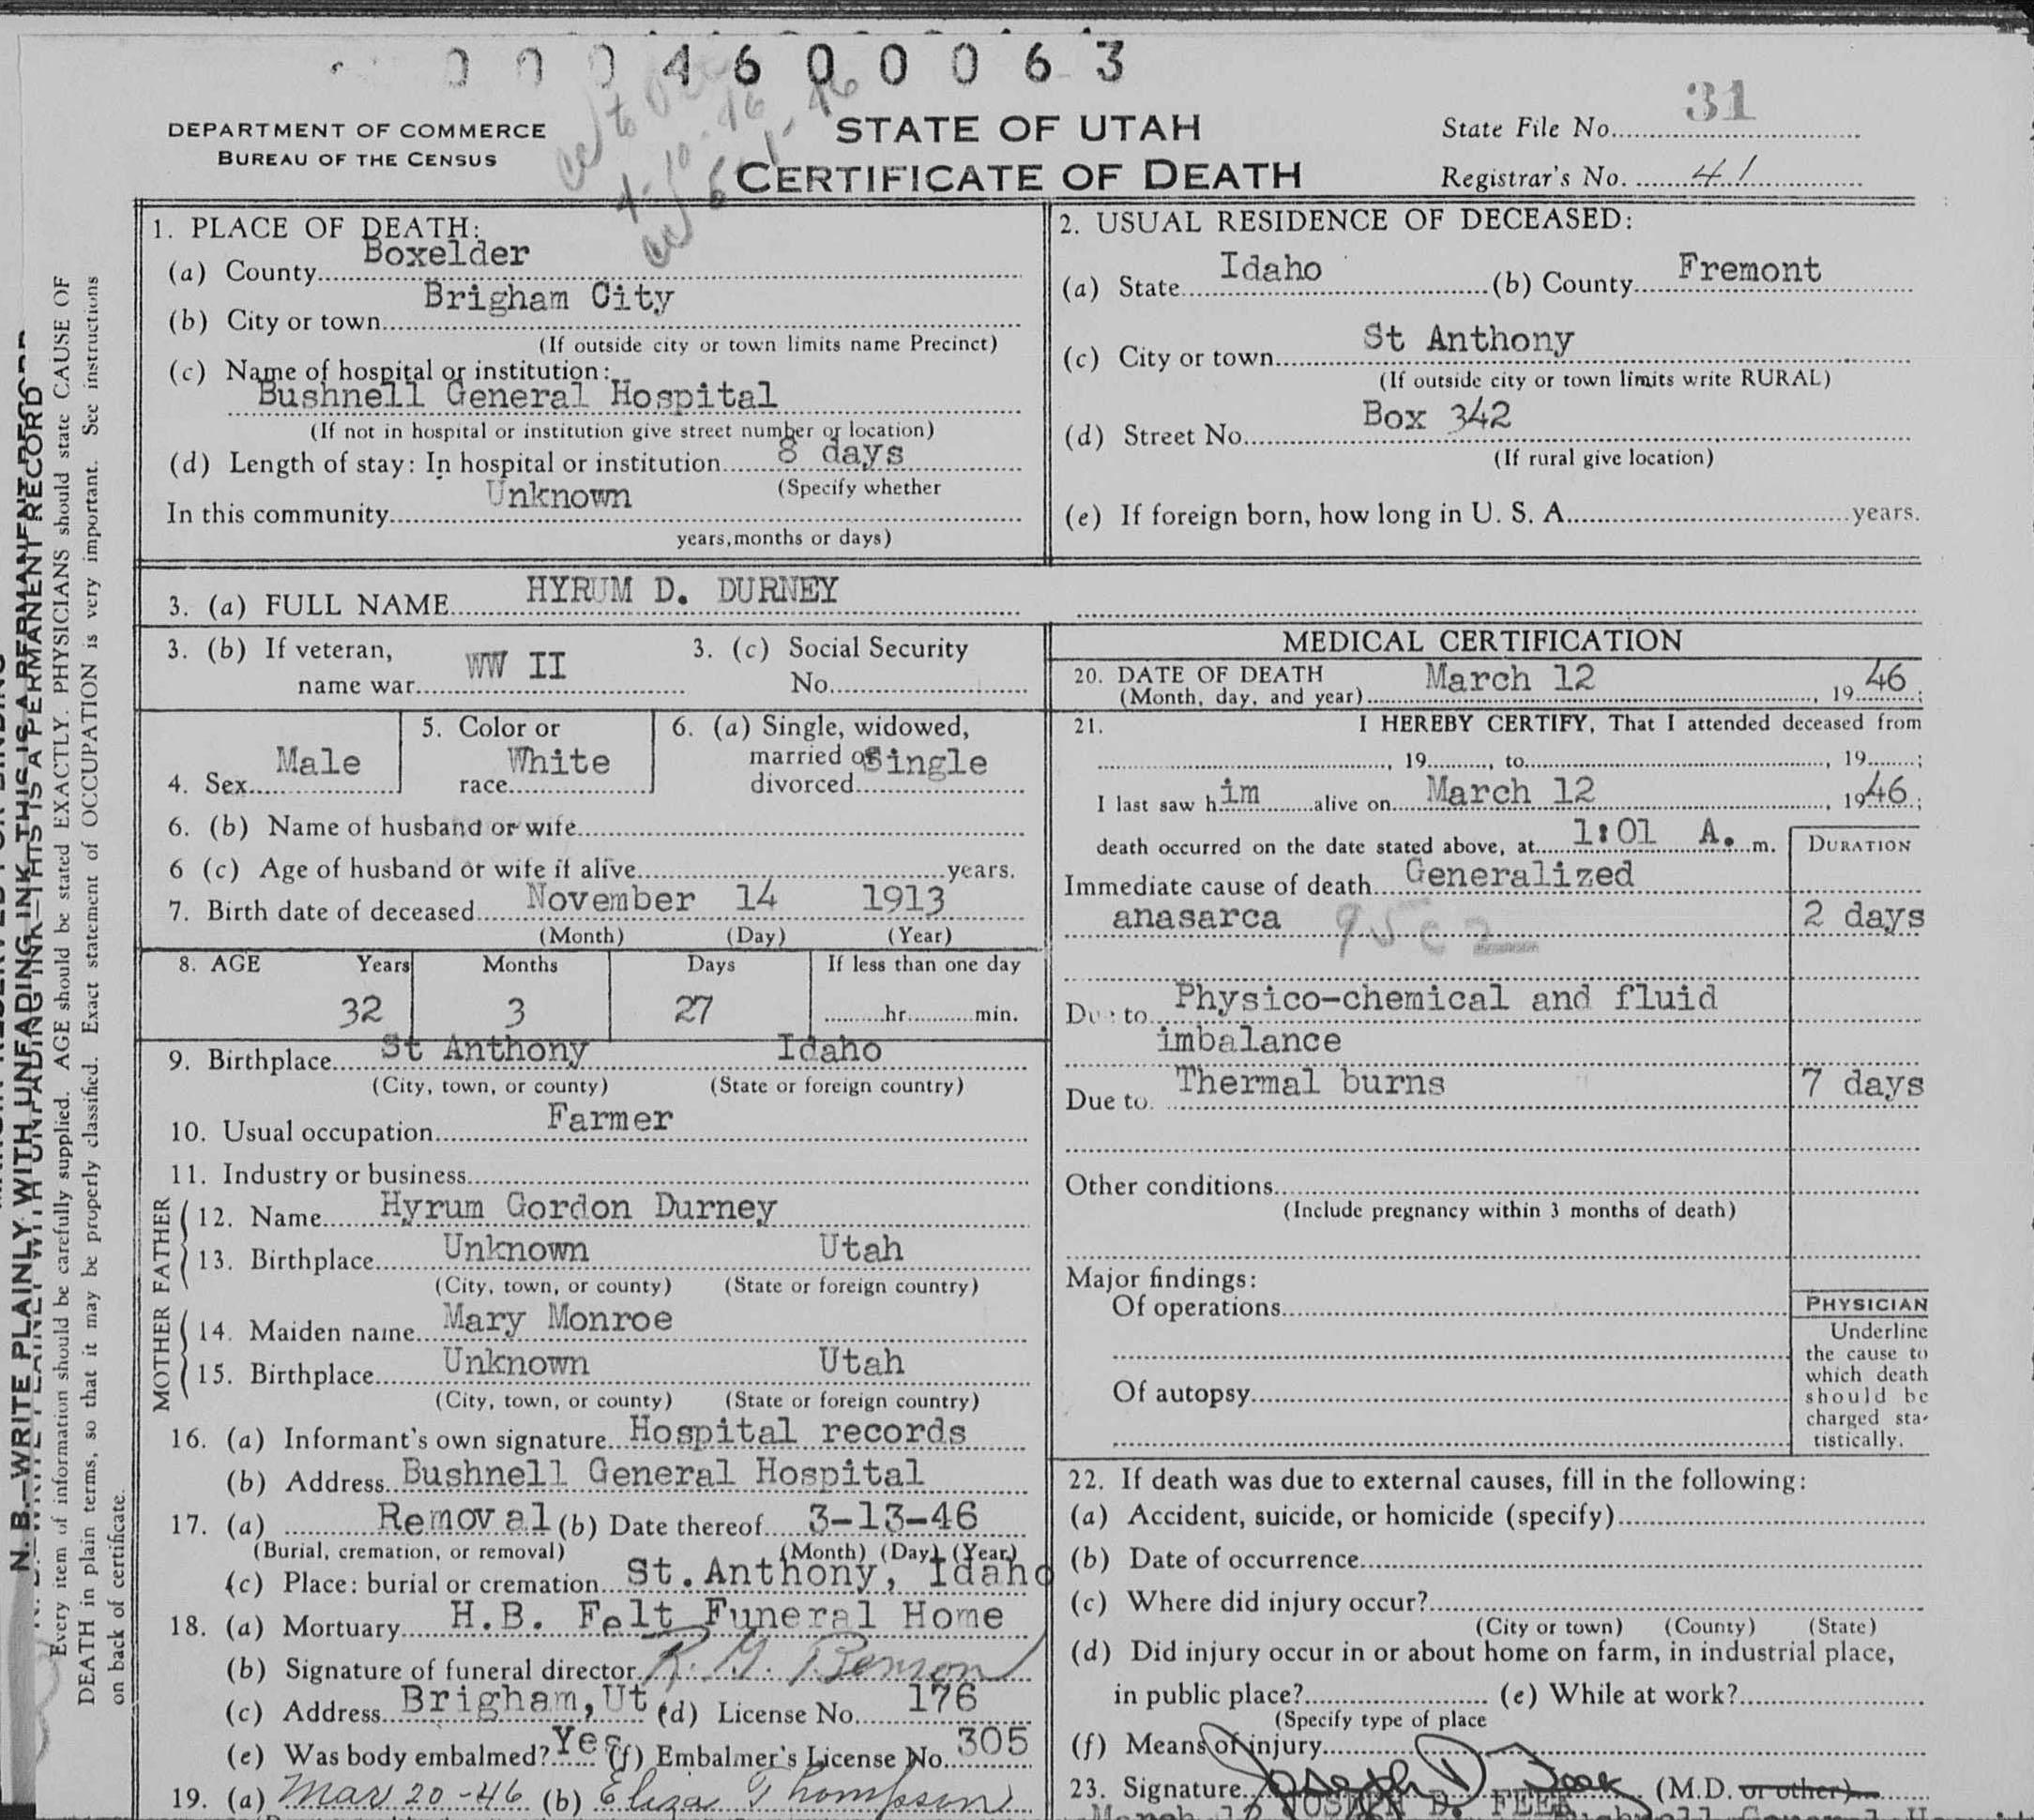 000460063
DEPARTMENT OF COMMERCE
BUREAU OF THE CENSUS
STATE OF UTAH
CERTIFICATE OF DEATH
State File No. 31
Registrar's No. 41
1. PLACE OF DEATH:
(a) County Boxelder
(b) City or town Brigham City
(If outside city or town limits name Precinct)
(c) Name of hospital or institution:
Bushnell General Hospital
(If not in hospital or institution give street number or location)
(d) Length of stay: In hospital or institution 8 days
(Specify whether
In this community Unknown
years, months or days)
2. USUAL RESIDENCE OF DECEASED:
(a) State Idaho (b) County Fremont
(c) City or town St Anthony
(If outside city or town limits write RURAL)
(d) Street No. Box 342
(If rural give location)
(e) If foreign born, how long in U. S. A. years.
3. (a) FULL NAME HYRUM D. DURNEY
3. (b) If veteran,
name war WW II
3. (c) Social Security
No.
4. Sex Male
5. Color or
race White
6. (a) Single, widowed,
married or Single
divorced
6. (b) Name of husband or wife
6 (c) Age of husband or wife if alive years.
7. Birth date of deceased November 14 1913
(Month) (Day) (Year)
8. AGE Years Months Days If less than one day
32 3 27 hr. min.
9. Birthplace St Anthony Idaho
(City, town, or county) (State or foreign country)
10. Usual occupation Farmer
11. Industry or business
FATHER
12. Name Hyrum Gordon Durney
13. Birthplace Unknown Utah
(City, town, or county) (State or foreign country)
MOTHER
14. Maiden name Mary Monroe
15. Birthplace Unknown Utah
(City, town, or county) (State or foreign country)
16. (a) Informant's own signature Hospital records
(b) Address Bushnell General Hospital
17. (a) Removal (b) Date thereof 3-13-46
(Burial, cremation, or removal) (Month) (Day) (Year)
(c) Place: burial or cremation St. Anthony, Idaho
18. (a) Mortuary H.B. Felt Funeral Home
(b) Signature of funeral director Benson
(c) Address Brigham, Ut (d) License No. 176
(e) Was body embalmed? Yes (f) Embalmer's License No. 305
19. (a) Mar 20-46 (b) Eliza Thompson
MEDICAL CERTIFICATION
20. DATE OF DEATH
(Month, day, and year) March 12, 1946;
21. I HEREBY CERTIFY, That I attended deceased from
, 19 , to , 19 ;
I last saw him alive on March 12, 1946;
death occurred on the date stated above, at 1:01 A. m.
DURATION
Immediate cause of death Generalized
anasarca 95c2 2 days
Due to Physico-chemical and fluid
imbalance
Due to Thermal burns 7 days
Other conditions
(Include pregnancy within 3 months of death)
Major findings:
Of operations
Of autopsy
PHYSICIAN
Underline
the cause to
which death
should be
charged sta-
tistically.
22. If death was due to external causes, fill in the following:
(a) Accident, suicide, or homicide (specify)
(b) Date of occurrence
(c) Where did injury occur?
(City or town) (County) (State)
(d) Did injury occur in or about home on farm, in industrial place,
in public place? (e) While at work?
(Specify type of place
(f) Means of injury
23. Signature Joseph D (M.D. or other)
N. B.—WRITE PLAINLY WITH UNFADING INK—THIS IS A PERMANENT RECORD
Every item of information should be carefully supplied. AGE should be stated EXACTLY. PHYSICIANS should state CAUSE OF
DEATH in plain terms, so that it may be properly classified. Exact statement of OCCUPATION is very important. See instructions
on back of certificate.